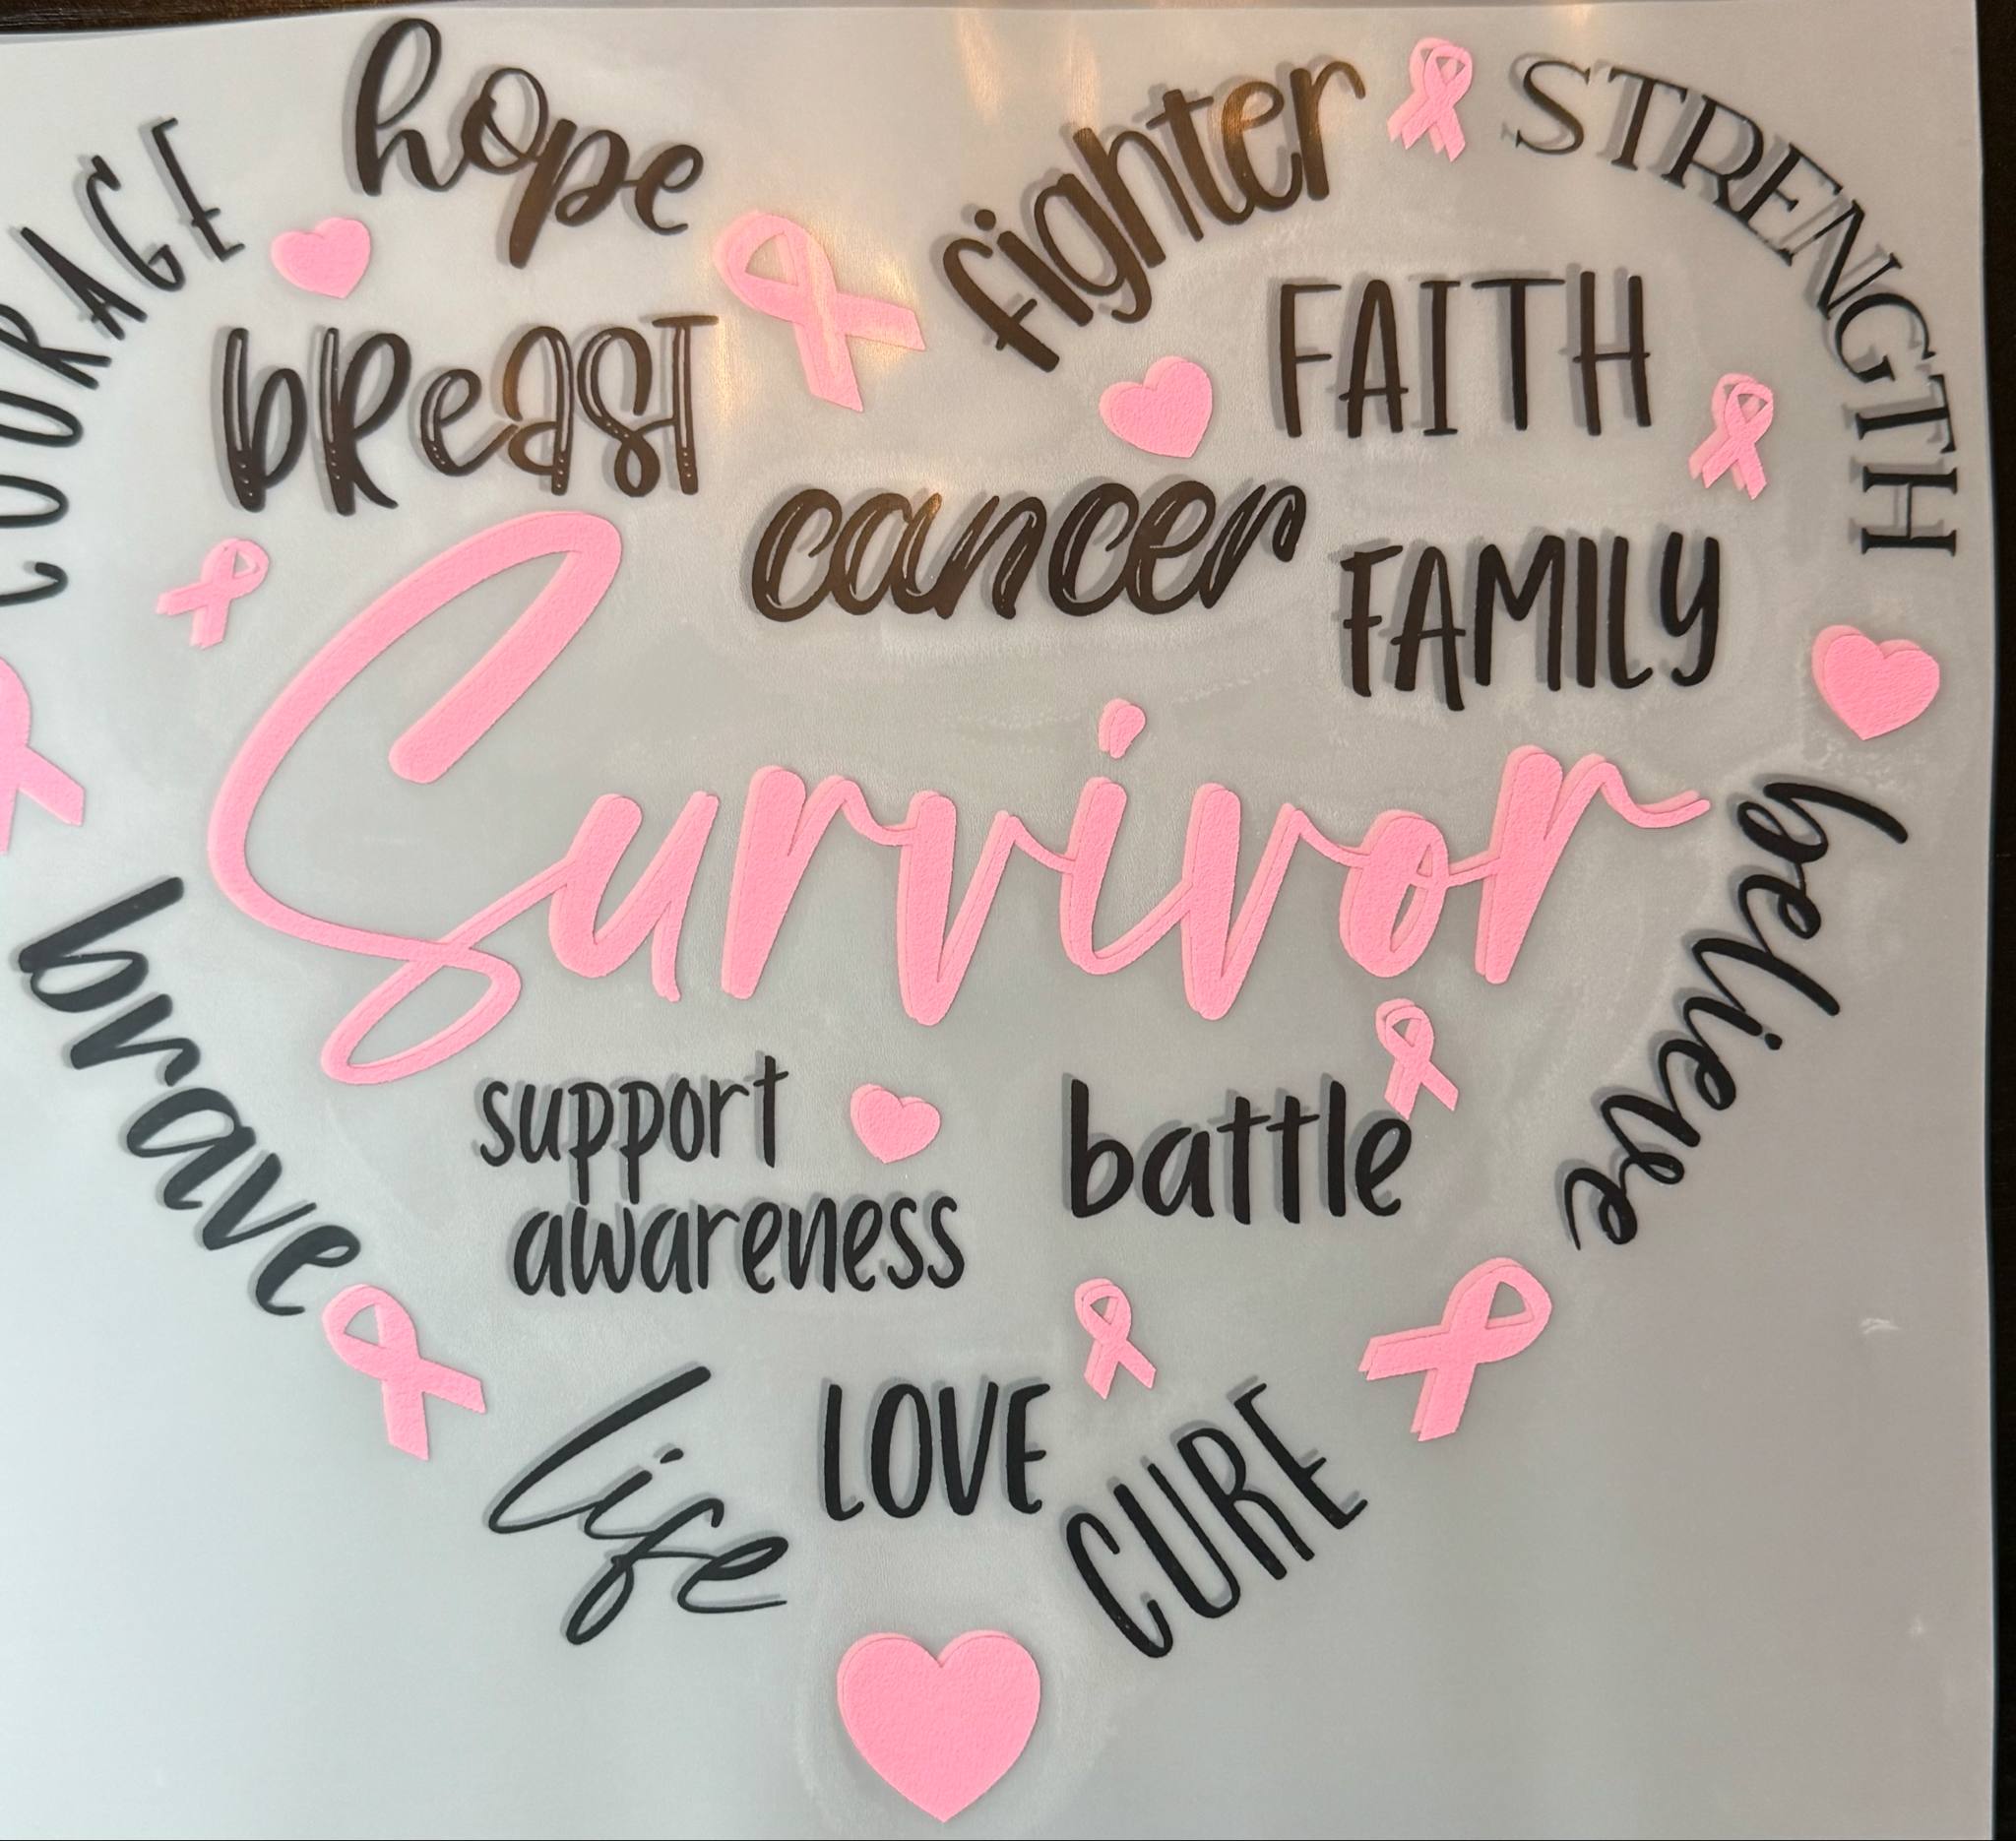 COURAGE
hope
fighter
STRENGTH
breast
FAITH
cancer
FAMILY
Survivor
believe
brave
support
battle
awareness
life
LOVE
CURE